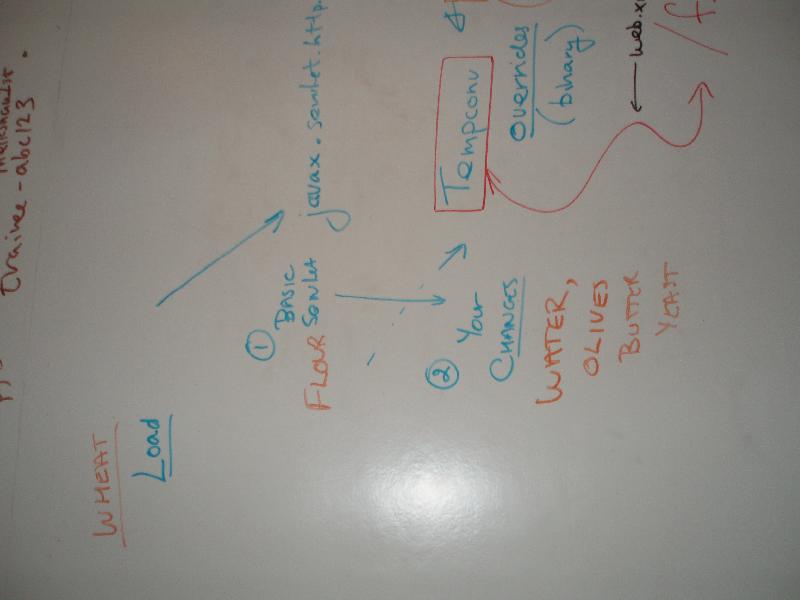 trainee - abc123
WHEAT
Load
① BASIC
FLOUR Servlet
javax.servlet.http.
② Your
CHANGES
Tempconv
WATER,
Overrides
OLIVES
(binary)
BUTTER
YEAST
← web.x
/f